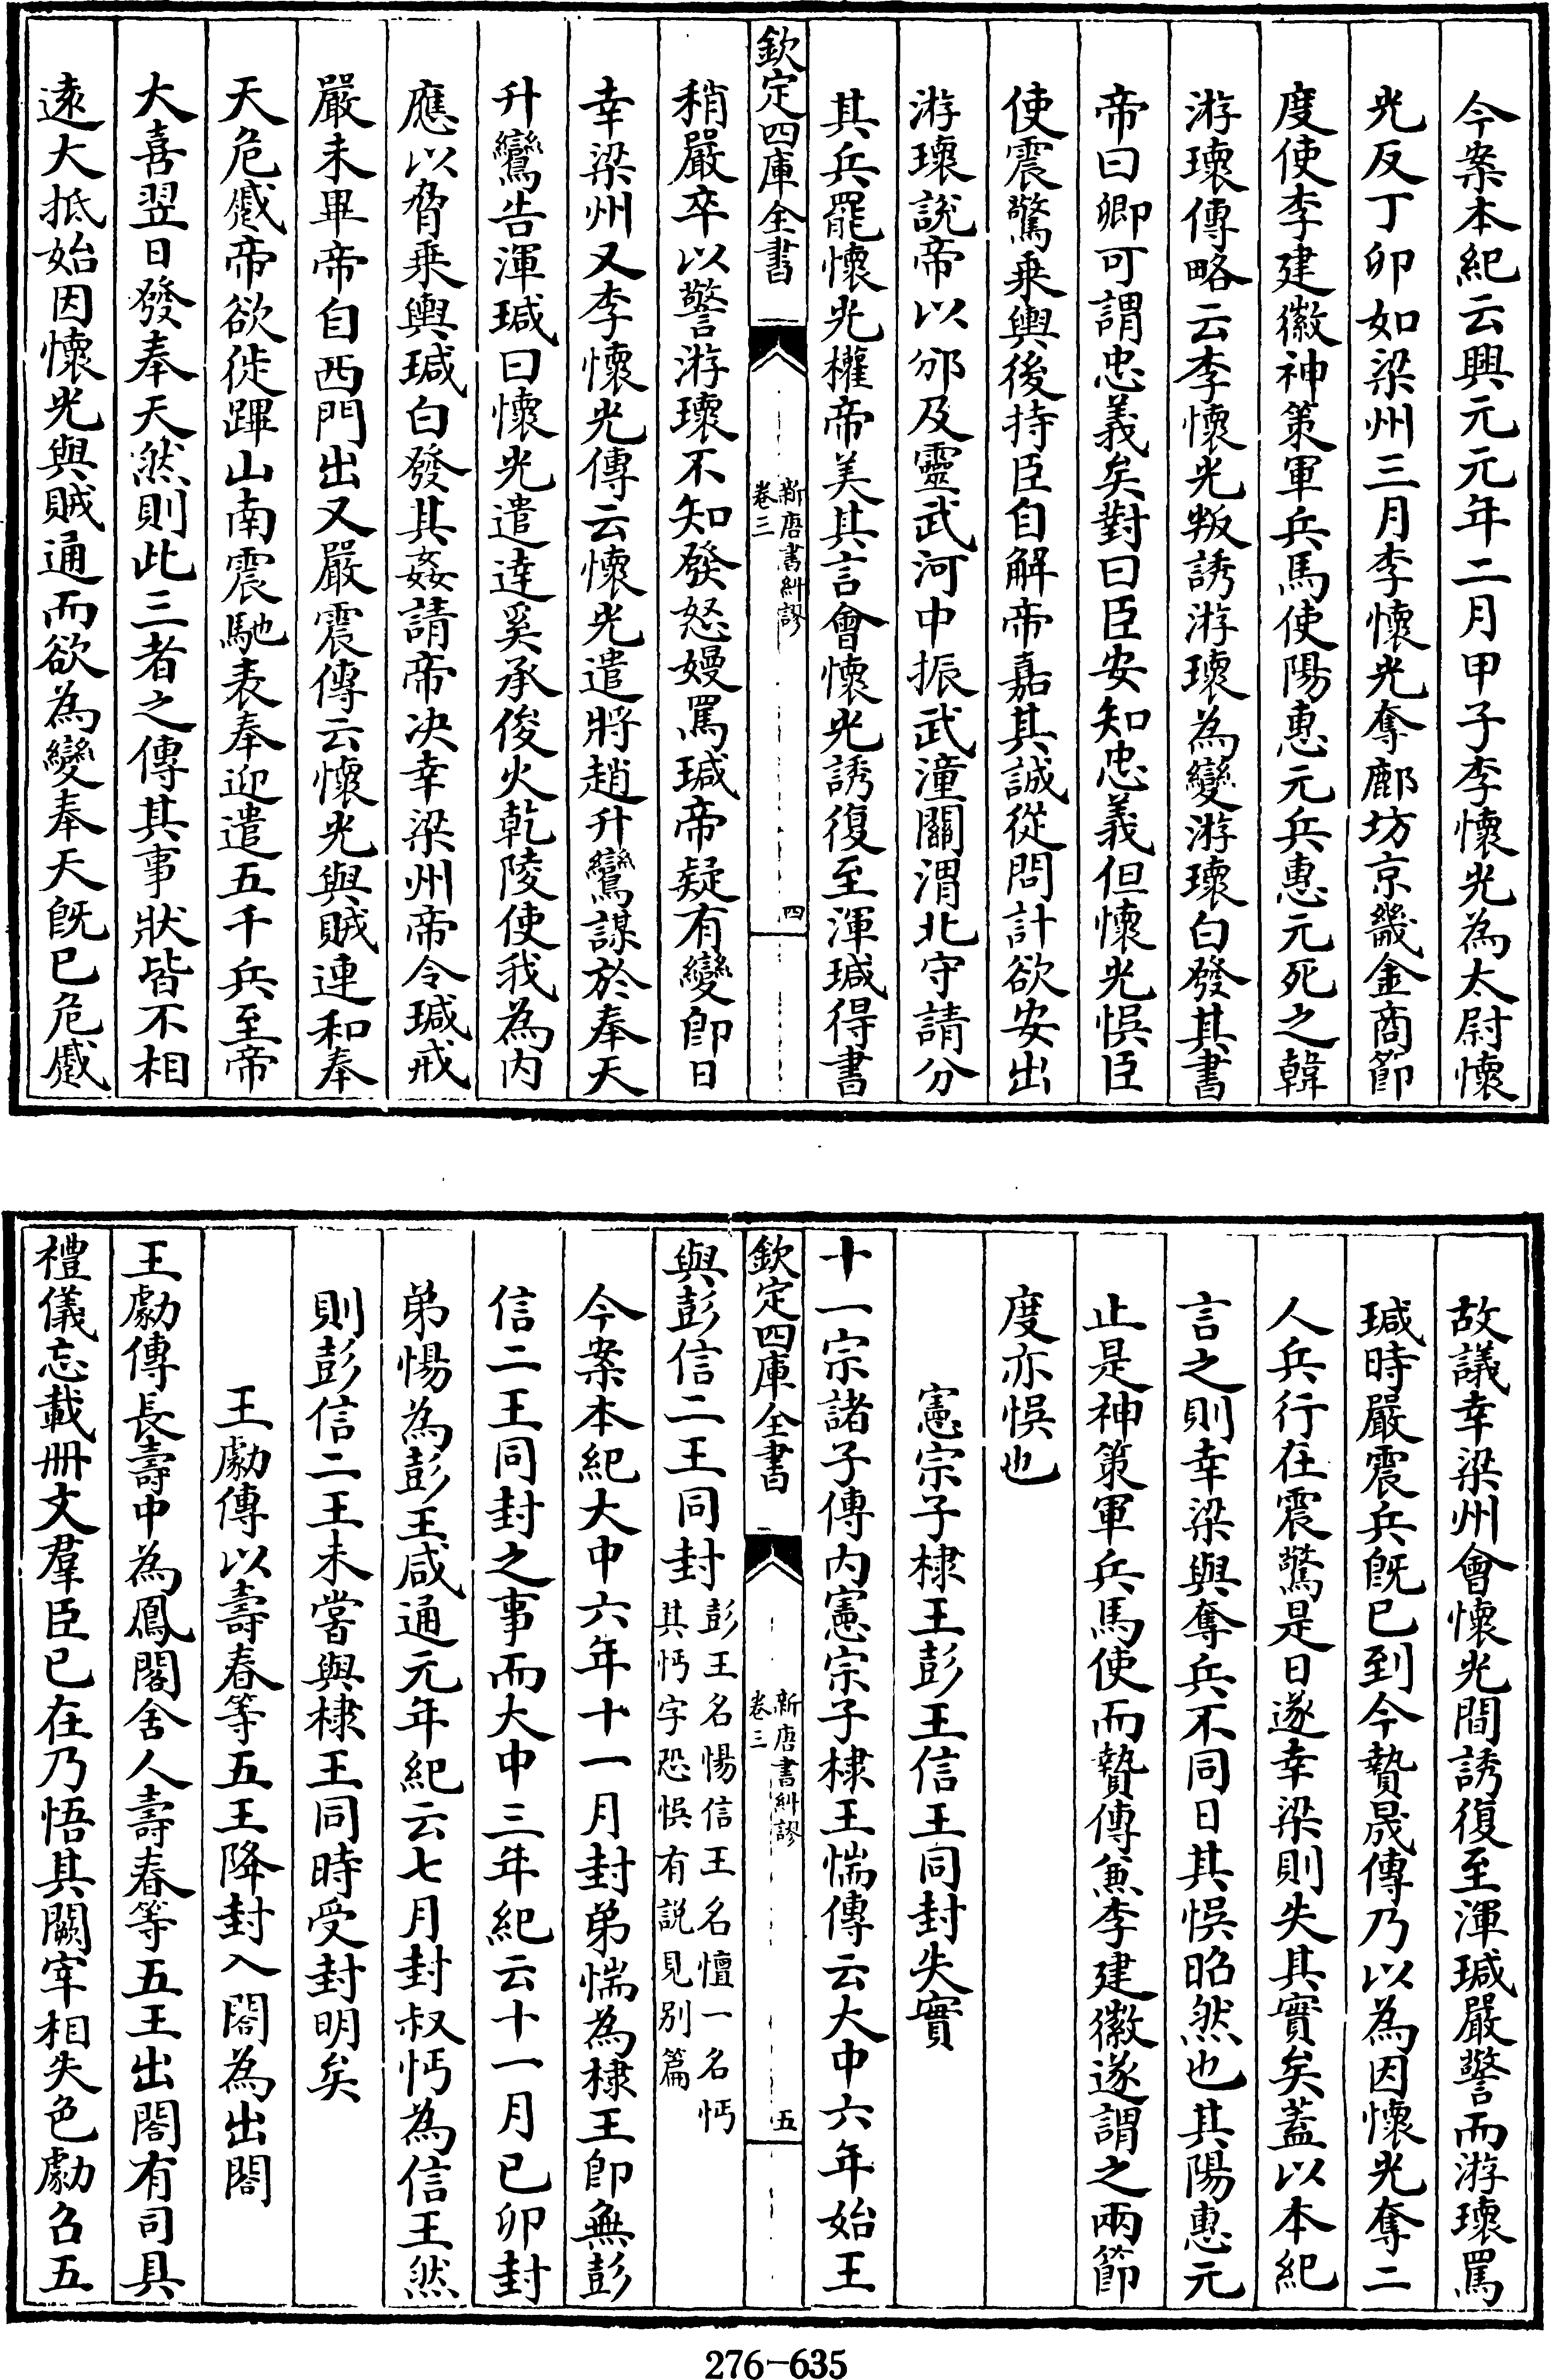 今案本紀云興元元年二月甲子李懷光為太尉懷
光反丁卯如梁州三月李懷光奪鄜坊京畿金商節
度使李建徽神策軍兵馬使陽惠元兵惠元死之韓
游瓌傳略云李懷光叛誘游瓌為變游瓌白發其書
帝曰卿可謂忠義矣對曰臣安知忠義但懷光悞臣
使震驚乗輿後持臣自解帝嘉其誠從問計欲安出
游瓌說帝以邠及靈武河中振武潼關渭北守請分
其兵罷懷光權帝美其言會懷光誘復至渾瑊得書
欽定四庫全書
新唐書糾謬
卷三
四
稍嚴卒以警游瓌不知發怒嫚罵瑊帝疑有變即日
幸梁州又李懷光傳云懷光遣將趙升鸞謀於奉天
升鸞告渾瑊曰懷光遣逹奚承俊火乾陵使我為内
應以脅乗輿瑊白發其姦請帝决幸梁州帝令瑊戒
嚴未畢帝自西門出又嚴震傳云懷光與賊連和奉
天危蹙帝欲徙蹕山南震馳表奉迎遣五千兵至帝
大喜翌日發奉天然則此三者之傳其事狀皆不相
逺大抵始因懷光與賊通而欲為變奉天旣已危蹙
故議幸梁州會懷光間誘復至渾瑊嚴警而游瓌罵
瑊時嚴震兵旣已到今贄晟傳乃以為因懷光奪二
人兵行在震驚是日遂幸梁則失其實矣蓋以本紀
言之則幸梁與奪兵不同日其悞昭然也其陽惠元
止是神策軍兵馬使而贄傳兼李建徽遂謂之兩節
度亦悞也
憲宗子棣王彭王信王同封失實
十一宗諸子傳内憲宗子棣王惴傳云大中六年始王
欽定四庫全書
新唐書糾謬
卷三
五
與彭信二王同封彭王名惕信王名憻一名㤝
其㤝字恐悞有説見别篇
今案本紀大中六年十一月封弟惴為棣王即無彭
信二王同封之事而大中三年紀云十一月已卯封
弟惕為彭王咸通元年紀云七月封叔㤝為信王然
則彭信二王未嘗與棣王同時受封明矣
王勮傳以壽春等五王降封入閤為出閤
王勮傳長壽中為鳳閣舍人壽春等五王出閤有司具
禮儀忘載冊文羣臣已在乃悟其闕宰相失色勮召五
276-635